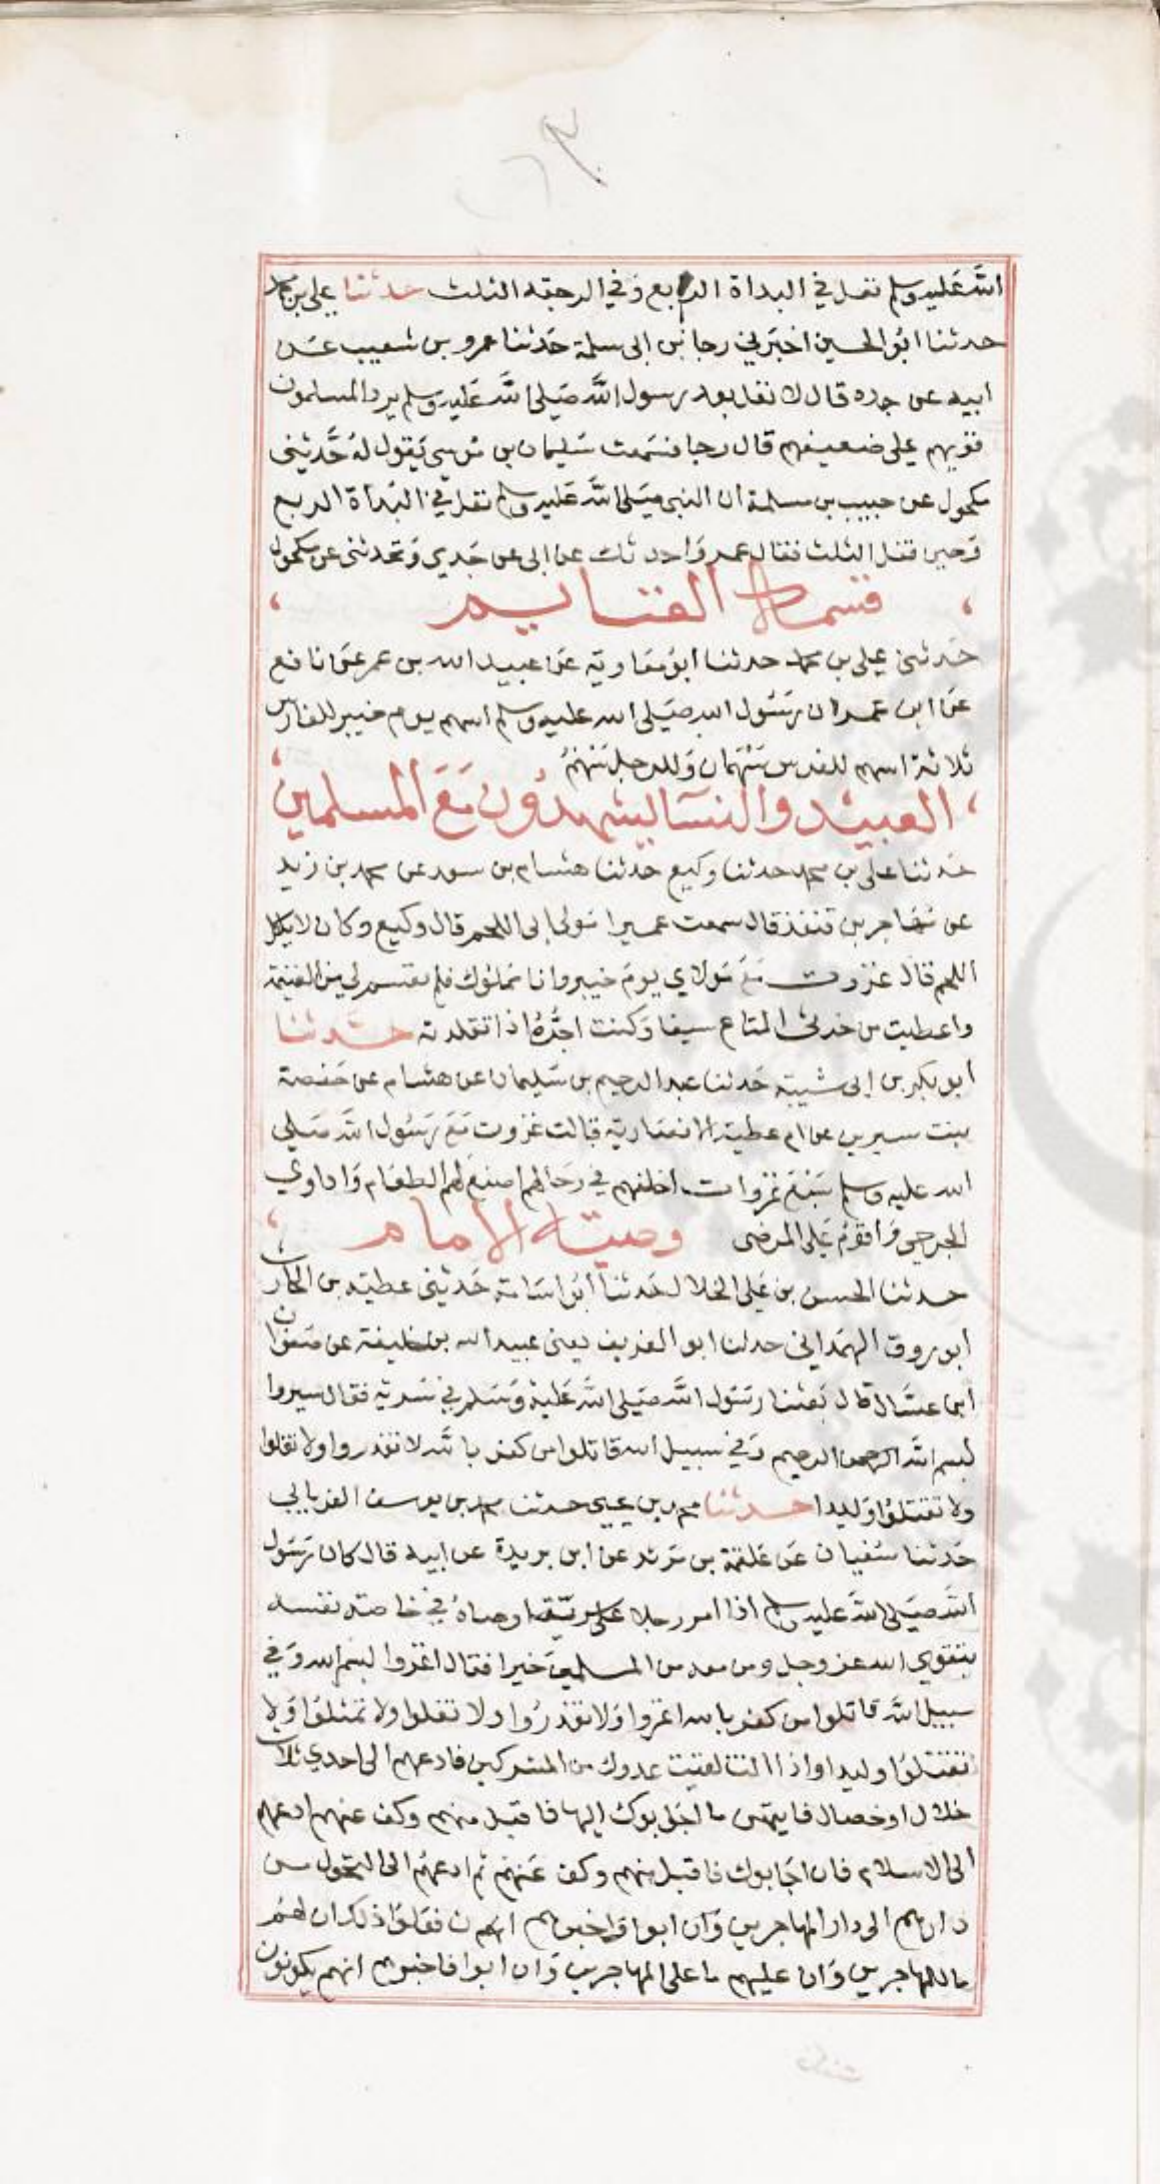 الله عليه وسلم نفل في البداة الربع وفي الرجعة الثلث حدثنا علي بن محمد
حدثنا ابو الحسين اخبرني رجا بن ابي سلمة حدثنا عمرو بن شعيب عن
ابيه عن جده قال لا نفل بعد رسول الله صلى الله عليه وسلم يرد المسلمون
قويهم على ضعيفهم قال رجا فسمعت سليمان بن موسى يقول له حدثني
مكحول عن حبيب بن مسلمة ان النبي صلى الله عليه وسلم نفل في البداة الربع
وحين قفل الثلث فقال عمرو احدثك عن ابي عن جدي وتحدثني عن مكحول
قسمة الغنايم
حدثني علي بن محمد حدثنا ابو معاوية عن عبيد الله بن عمر عن نافع
عن ابن عمر ان رسول الله صلى الله عليه وسلم اسهم يوم خيبر للفارس
ثلاثة اسهم للفرس سهمان وللرجل سهم
العبيد والنسا يشهدون مع المسلمين
حدثنا علي بن محمد حدثنا وكيع حدثنا هشام بن سعد عن محمد بن زيد
عن مهاجر بن قنفذ قال سمعت عميرا مولى ابي اللحم قال وكيع وكان لا ياكل
اللحم قال غزوت مع مولاي يوم خيبر وانا مملوك فلم يقسم لي من الغنيمة
واعطيت من خرثي المتاع سيفا وكنت اجره اذا تقلدته حدثنا
ابو بكر بن ابي شيبة حدثنا عبد الرحيم بن سليمان عن هشام عن حفصة
بنت سيرين عن ام عطية الانصارية قالت غزوت مع رسول الله صلى
الله عليه وسلم سبع غزوات اخلفهم في رحالهم اصنع لهم الطعام واداوي
الجرحى واقوم على المرضى وصية الامام
حدثنا الحسن بن علي الخلال حدثنا ابو اسامة حدثني عطية بن الحارث
ابو روق الهمداني حدثنا ابو الغريف يعني عبيد الله بن خليفة عن صفوان
ابن عسال قال بعثنا رسول الله صلى الله عليه وسلم في سرية فقال سيروا
بسم الله الرحمن الرحيم وفي سبيل الله قاتلوا من كفر بالله لا تغدروا ولا تغلوا
ولا تقتلوا وليدا حدثنا محمد بن يحيى حدثنا محمد بن يوسف الفريابي
حدثنا سفيان عن علقمة بن مرثد عن ابن بريدة عن ابيه قال كان رسول
الله صلى الله عليه وسلم اذا امر رجلا على سرية اوصاه في خاصة نفسه
بتقوى الله عز وجل ومن معه من المسلمين خيرا فقال اغزوا بسم الله وفي
سبيل الله قاتلوا من كفر بالله اغزوا ولا تغدروا ولا تغلوا ولا تمثلوا ولا
تقتلوا وليدا واذا انت لقيت عدوك من المشركين فادعهم الى احدى ثلاث
خلال او خصال فايتهن ما اجابوك اليها فاقبل منهم وكف عنهم ادعهم
الى الاسلام فان اجابوك فاقبل منهم وكف عنهم ثم ادعهم الى التحول من
دارهم الى دار المهاجرين وان ابوا واخبرهم انهم ان فعلوا ذلك ان لهم
ما للمهاجرين وان عليهم ما على المهاجرين وان ابوا فاخبرهم انهم يكونون